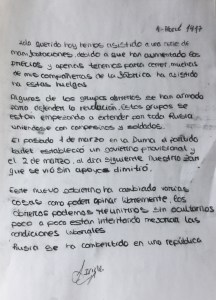 4-Abril 1917
hoy hemos asistido a una serie de
manifestaciones debido a que han aumentado los
precios y apenas tenemos para comer, muchas
de mis compañeras de la fábrica ha asistido
a estas huelgas
Algunos de los grupos obreros se han armado
para defender la revolución. Estos grupos se
están empezando a extender con toda Rusia
uniendose con campesinos y soldados.
El pasado 4 de marzo en la Duma el partido
kadet estableció un gobierno provisional y
el 2 de marzo, al día siguiente nuestro zar
que se vió sin apoyos dimitió.
Este nuevo gobierno ha cambiado varias
cosas como poder opinar libremente, los
obreros podemos reunirnos sin ocultarlo
poco a poco están intentando mejorar las
condiciones laborales.
Rusia se ha convertido en una república